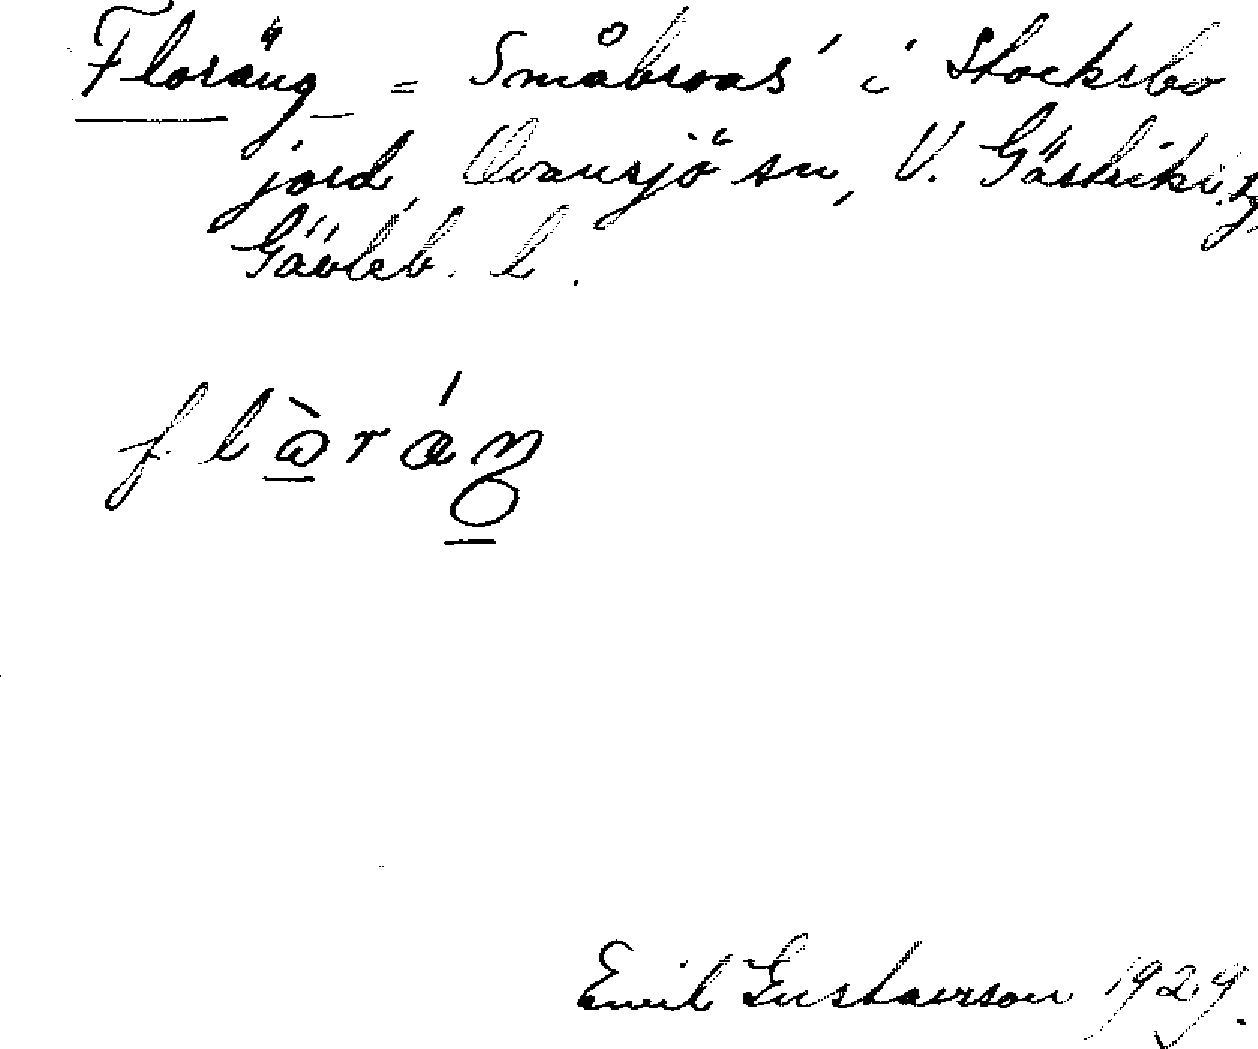 Floräng = Småbroas' i Stocksbo
jord, Ovansjö sn, V. Gästrikl.
Gävleb. l.
Emil Gustavsson 1929.